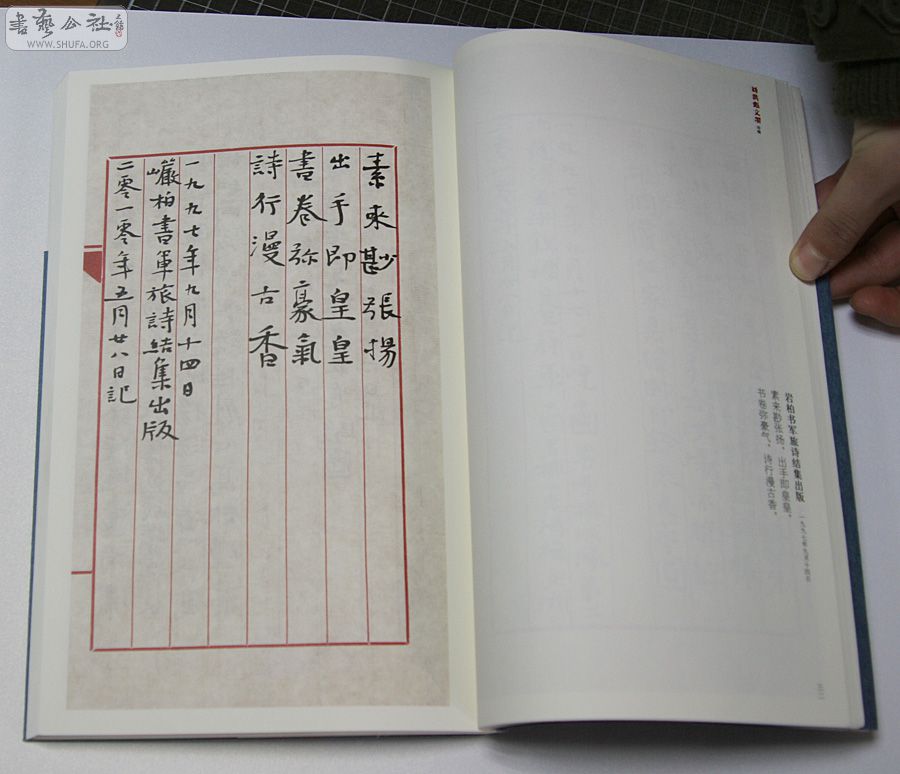 書藝公社
WWW.SHUFA.ORG
素來尠張揚
出手即皇皇
書卷弥豪氣
詩行漫古香
一九九七年九月十四日
巗柏書軍旅詩結集出版
二零一零年五月廿八日記
岩柏书军旅诗结集出版 一九九七年九月十四日
素来尠张扬，出手即皇皇。
书卷弥豪气，诗行漫古香。